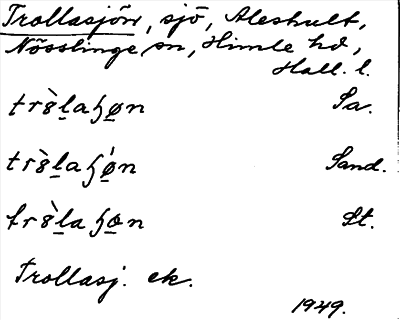 Trollasjön, sjö, Aleshult,
Nösslinge sn, Himle hd,
Hall. l.
trɞ̀l̠aɧø̠n Sa.
trɞ̀l̠aɧǿ̠n Sand.
trɞ̀l̠aɧo̠n St.
Trollasj. ek.
1949.